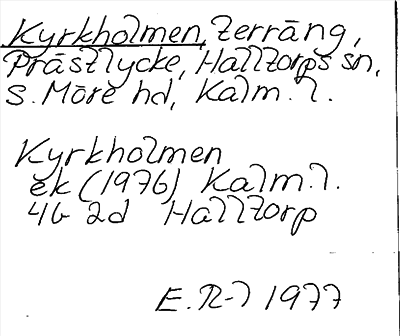 Kyrkholmen, terräng,
Prästlycke, Halltorps sn,
S. Möre hd, Kalm. l.
Kyrkholmen
ek (1976) Kalm. l.
4G 2d Halltorp
E. R-l 1977